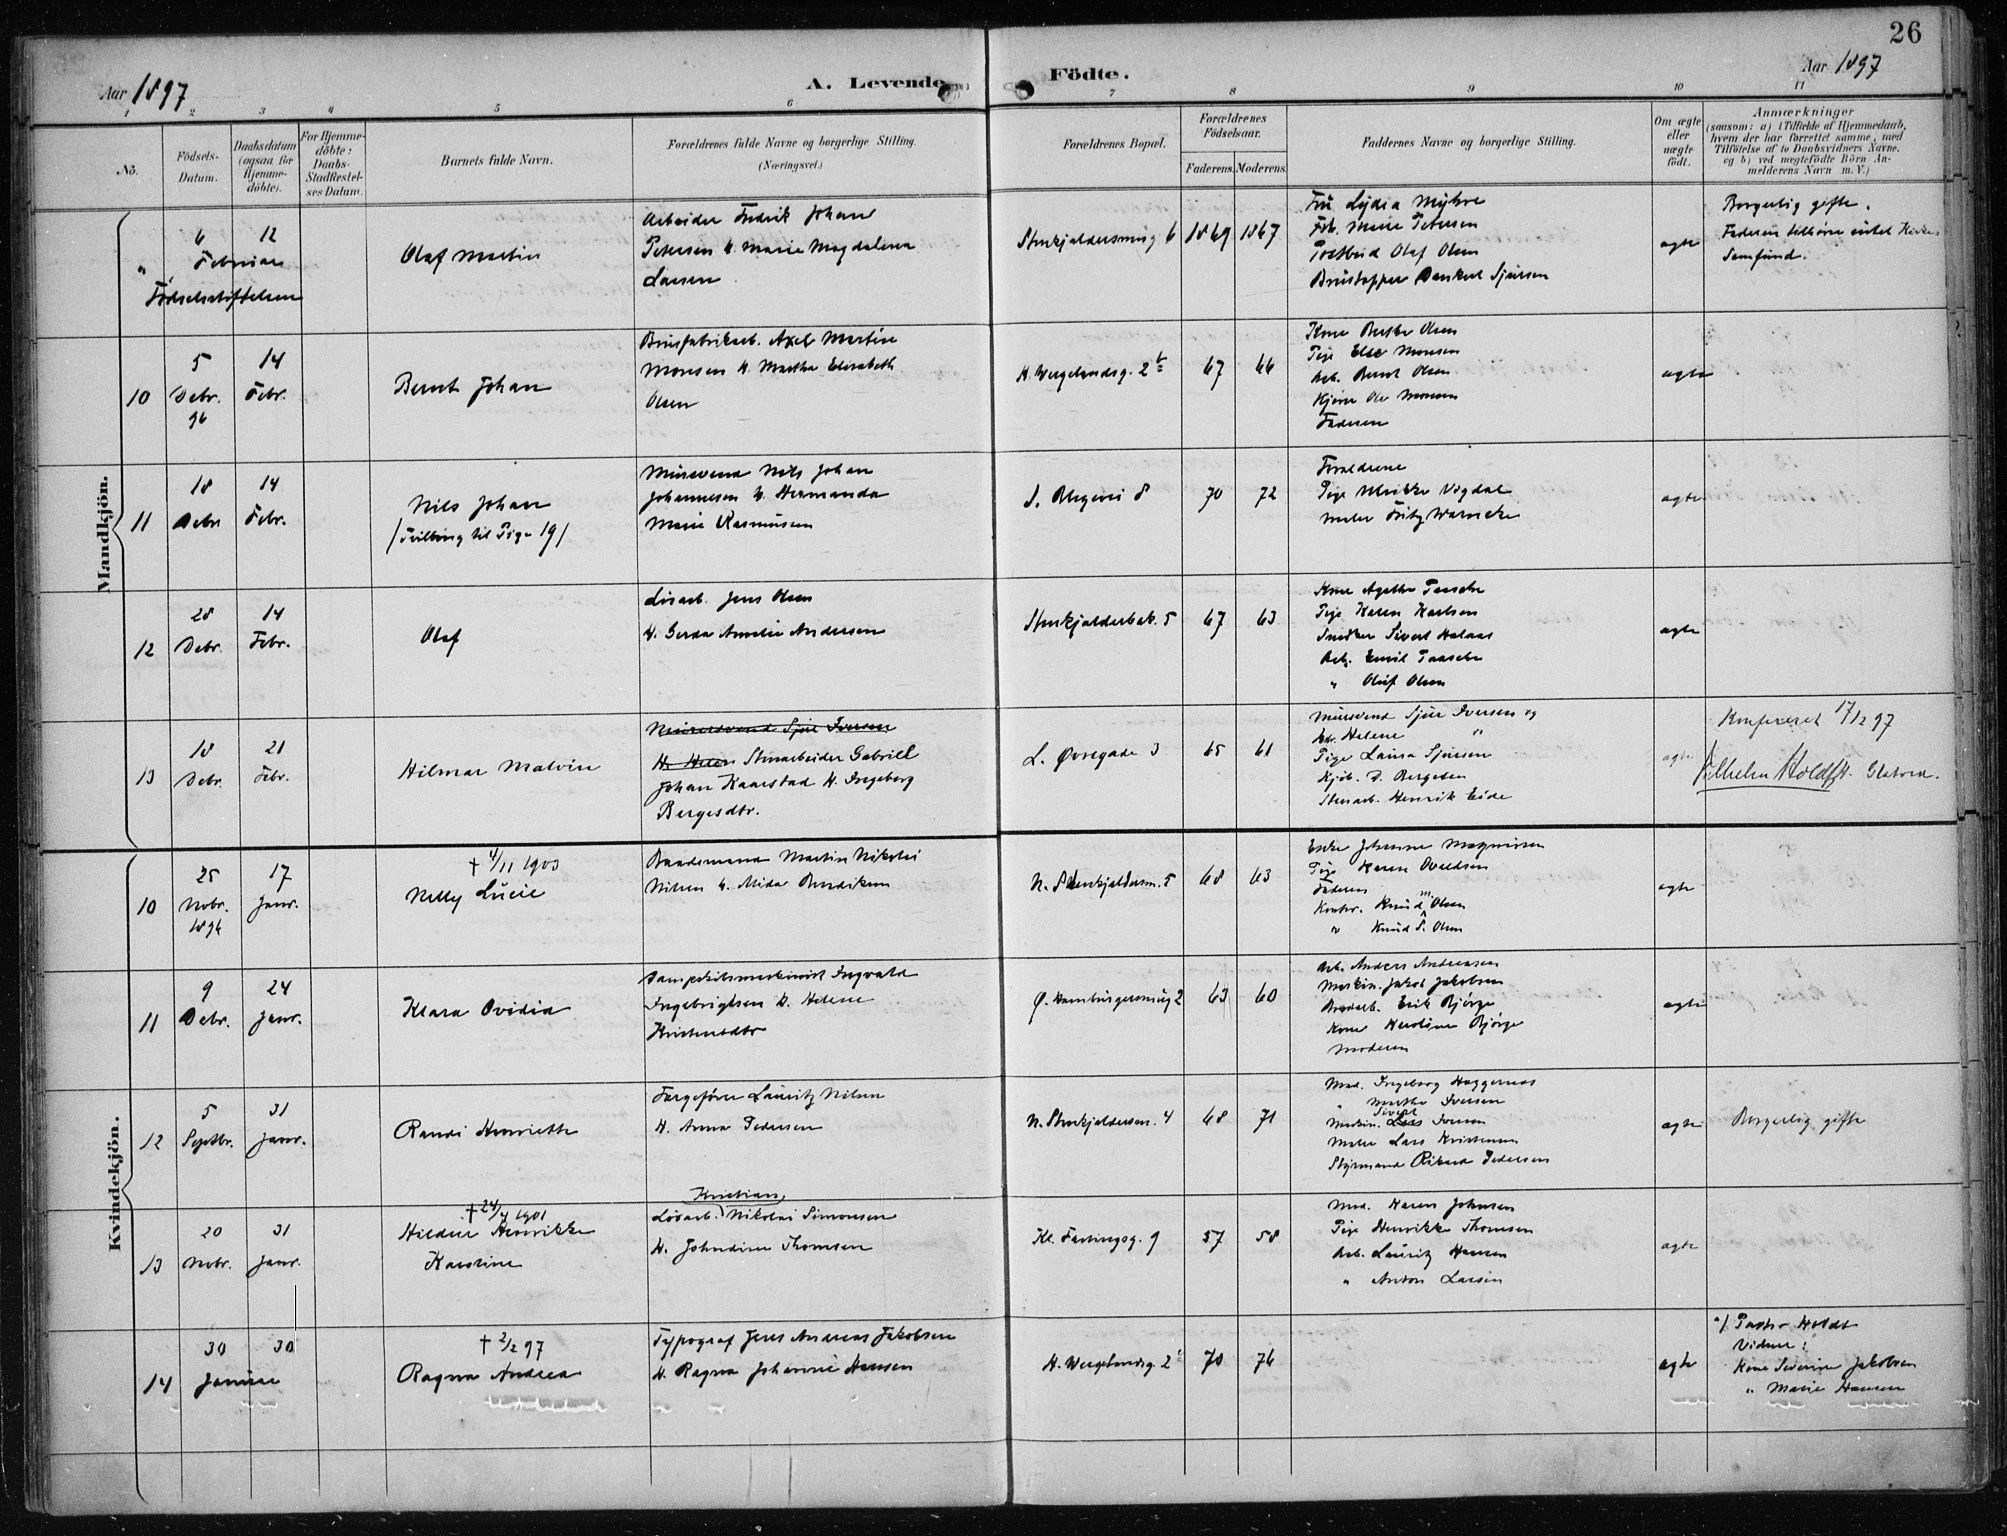 26
Aar 1897
A. Levende
Födte.
Aar 1897
1 2 3 4 5 6 7 8 9 10 11
No.
Födsels-
Datum.
Daabsdatum
(ogsaa for
Hjemme-
döbte).
For Hjemme-
döbte:
Daabs-
Stadfæstel-
ses Datum.
Barnets fulde Navn.
Forældrenes fulde Navne og borgerlige Stilling.
(Næringsvei.)
Forældrenes Bopæl.
Forældrenes
Födselsaar.
Faderens. Moderens.
Faddernes Navne og borgerlige Stilling.
Om ægte
eller
uægte
født.
Anmærkninger
(saasom: a) i Tilfælde af Hjemmedaab,
hvem der har forrettet samme, med
Tilföielse af to Daabsvidners Navne.
og b) ved uægtefödte Börn An-
melderens Navn m. V.)
Mandkjön.
"
6 12
Februar
Födselsstiftelsen
Olaf Martin
Arbeider Fredrik Johan
Petersen & Marie Magdalena
Larsen
Stenkjældersmug 6
1869 1867
Fru Lydia Myhre
Frk. Marie Petersen
Postbud Olaf Olsen
Brustapper Dankert Sjursen
ægte
Borgerlig gifte.
Faderen tilhører intet Kirke
Samfund.
10
5
Debr.
96
14
Febr.
Bernt Johan
Brusfabrikarb. Axel Martin
Monsen H. Martha Elisabeth
Olsen
H. Wergelandsg. 2 b
67 66
Kone Berthe Olsen
Pige Else Monsen
Arb. Bernt Olsen
Kjører Ole Monsen
Faderen
ægte
11
18
Debr
14
Febr.
Nils Johan
/Tvilling til Pige 19/
Mursvend Nils Johan
Johannesen H. Hermanda
Marie Rasmussen
S. Blegevei 8
70 72
Forældrene
Pige Ulrikke Vigdal
Maler Fritz Warncke
ægte
12
28
Debr.
14
Febr.
Olaf
Løsarb. Jens Olsen
H. Gerda Amelie Andersen
Stenkjælderbak. 5
67 63
Kone Agathe Paasche
Pige Karen Karlsen
Snedker Sivert Halaas
Arb. Emil Paasche
" Oluf Olsen
ægte
13
18
Debr.
21
Febr.
Hilmar Malvin
Mursvend Sjur Iversen
H. Helen Stenarbeider Gabriel
Johan Kaarstad H. Ingeborg
Bergesdtr.
L. Øvregade 3
65 61
Mursvend Sjur Iversen og
Helene "
Pige Laura Sjursen
Kjøb. D. Bergesen
Stenarb. Henrik Eide
ægte
Konfereret 17/12 97
Vilhelm Holdt
Kvindekjön.
10
25
Nobr.
1896
17
Janr.
+ 4/11 1903
Nelly Lucie
Baadsmand Martin Nikolai
Nilsen H. Alida Bendiksen
N. Stenkjældersm. 5
68 63
Enke Johanne Magnussen
Pige Karen Evensen
Faderen
Kontor. Knud M. Olsen
" Knud S. Olsen
ægte
11
9
Debr.
24
Janr.
Klara Ovidia
Dampskibsmaskinist Ingvald
Ingebrigtsen H. Helene
Kristensdtr
Ø. Hamburgersmug 2
63 60
Arb. Anders Andreassen
Maskin. Jakob Jakobsen
Erik Bjørge
Kone Karoline Bjørge
Moderen
ægte
12
5
Septbr.
31
Janr.
Randi Henriette
Færgefører Lauritz Nilsen
H. Anna Pedersen
N. Stenkjældersm. 4
68 71
Mad. Ingeborg Haggernæs
" Marthe Iversen
Maskin. Lars Sivert Iversen
Maler Lars Kristensen
Styrmand Rikard Pedersen
ægte
Borgerlig gifte
13
20
Nobr.
31
Janr.
+ 24/4 1901
Hildur Henrikke
Karoline
Løsarb. Kristian Nikolai Simonsen
H. Johndine Thomsen
Kl. Fastingsg. 9
57 58
Mad. Karen Johnsen
Pige Henrikke Thomsen
Arb. Lauritz Hansen
" Anton Larsen
ægte
14
30 30
Januar
+ 2/2 97
Ragna Andrea
Typograf Jens Andreas Jakobsen
H. Ragna Johanne Hansen
H. Wergelandsg. 2
70 76
ægte
a/ Pastor Holdt
Vidner:
Kone Severine Jakobsen
" Marie Hansen